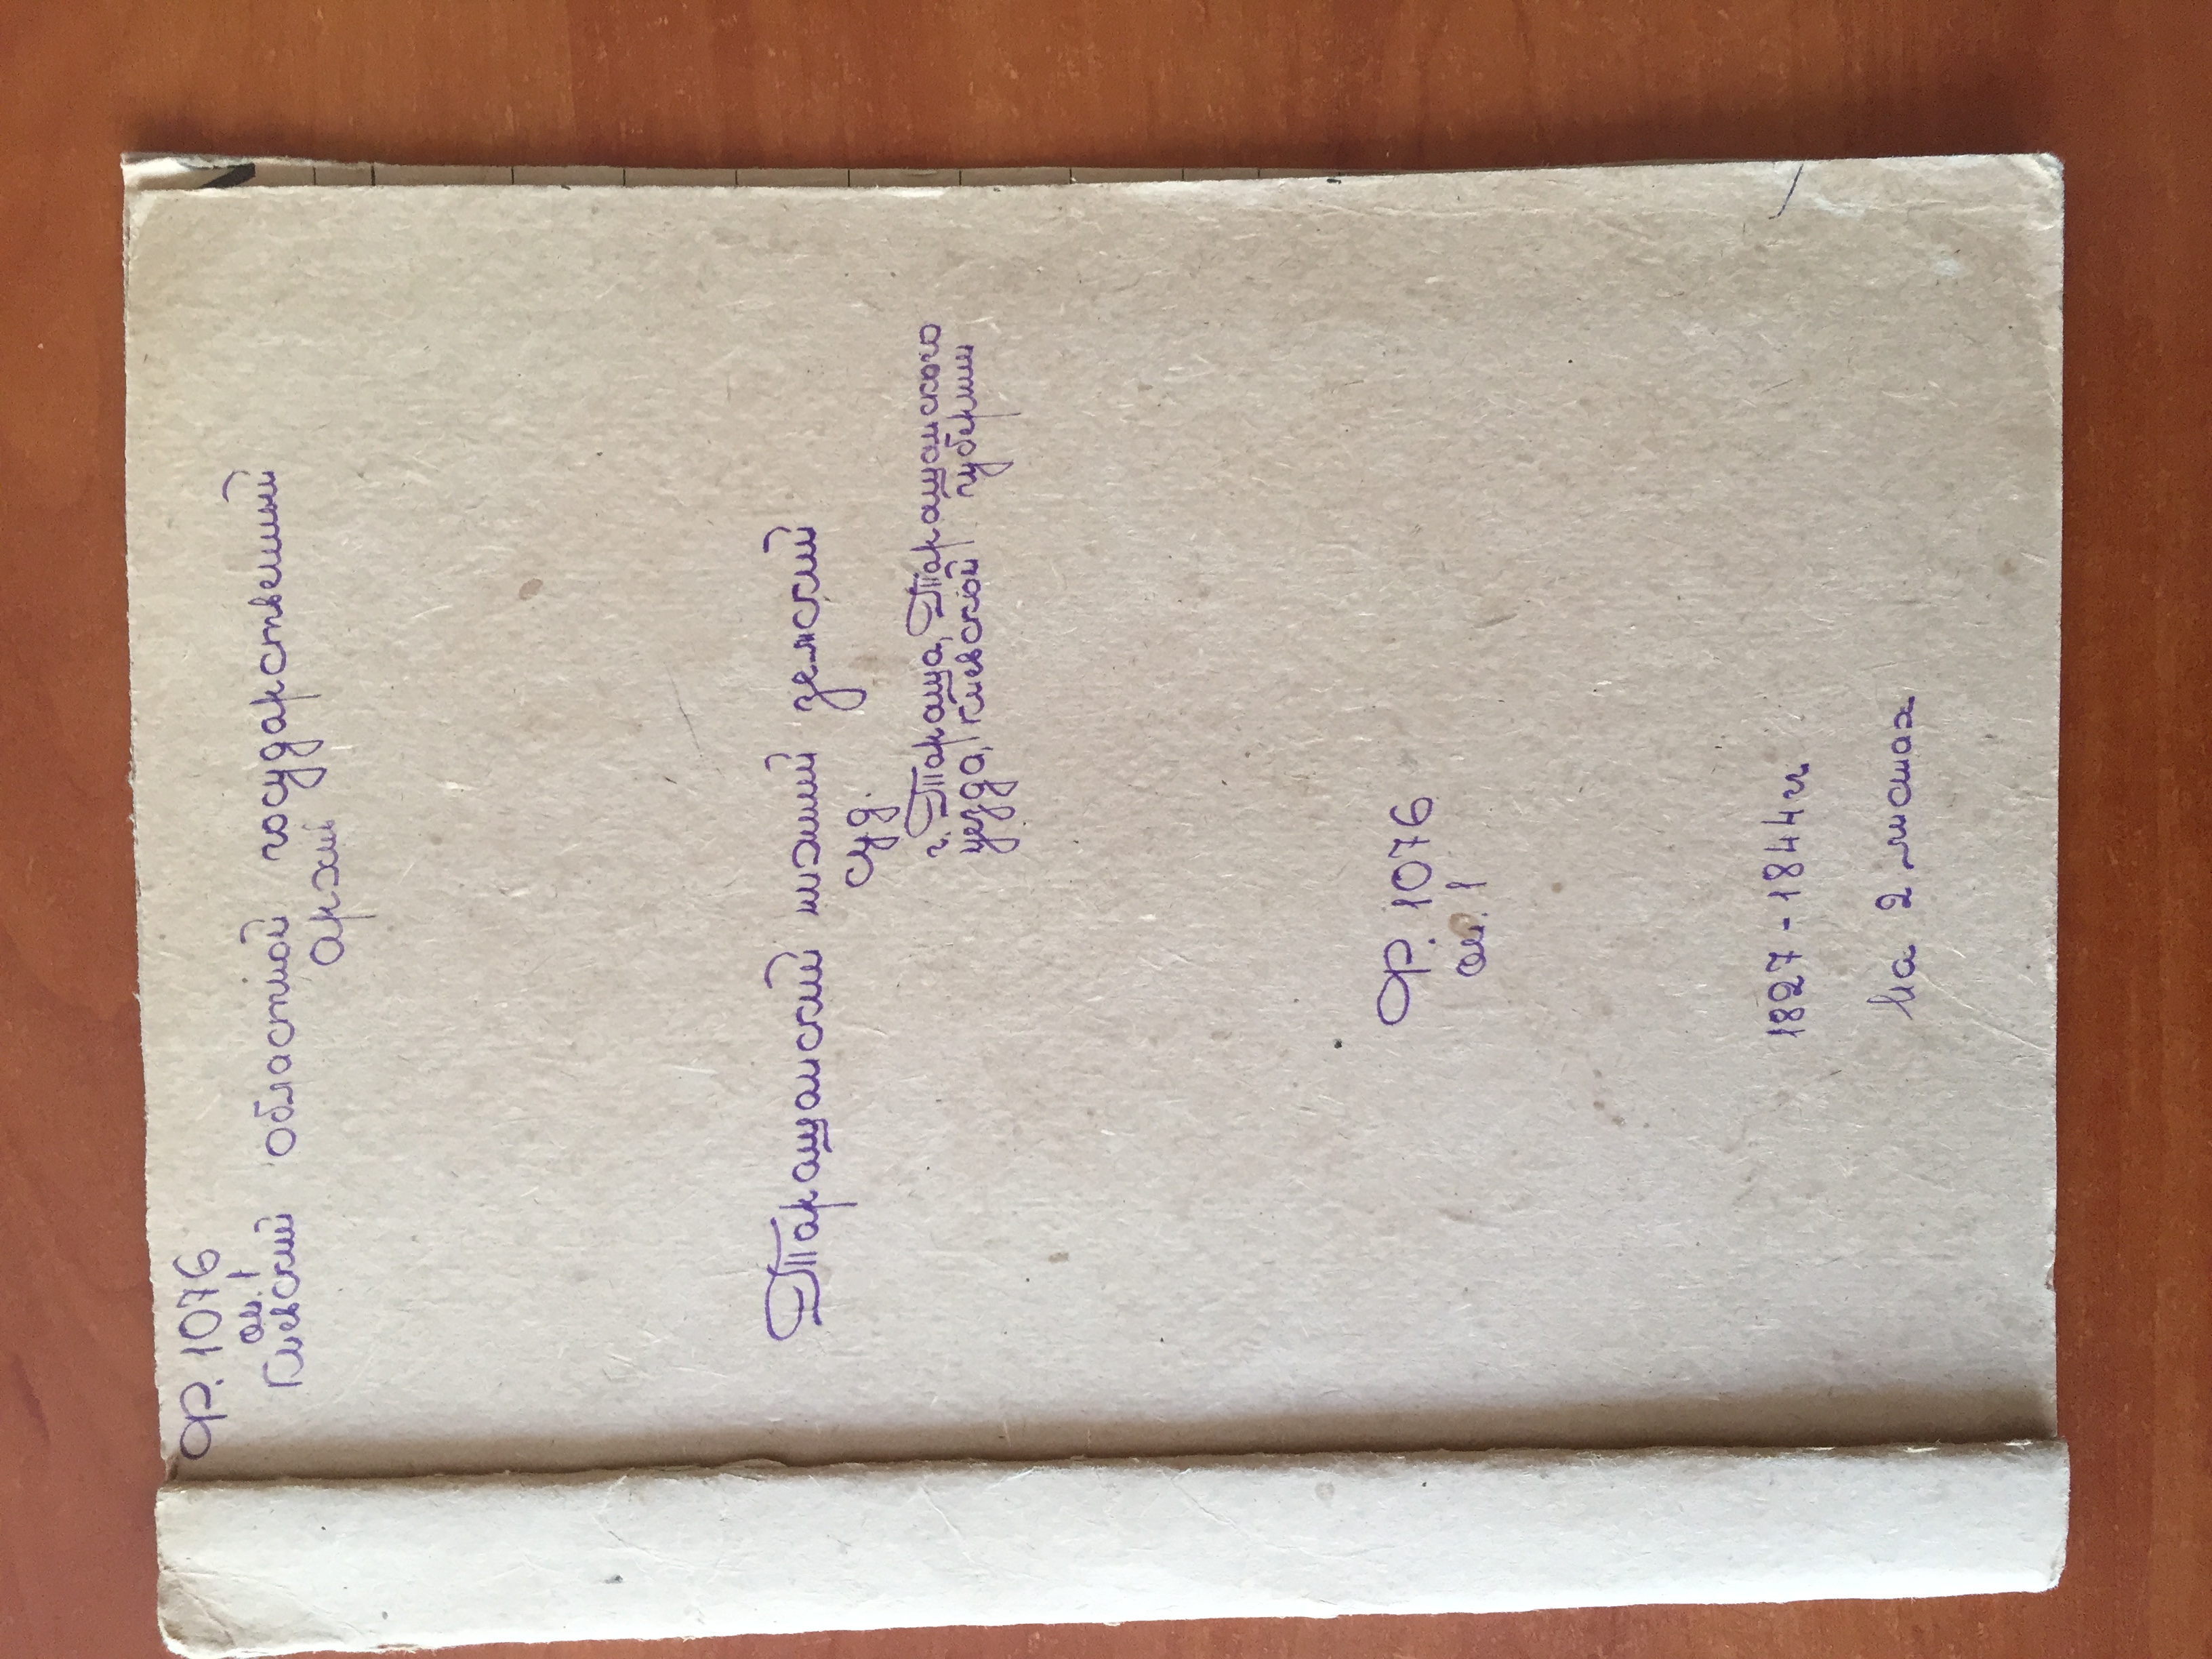 Ф. 1076
оп. 1
Киевский областной государственный
архив
Таращанский нижний земский
суд.
г. Тараща, Таращанского
уезда, Киевской губернии
Ф. 1076
оп. 1
1827-1844 гг
На 2 листах